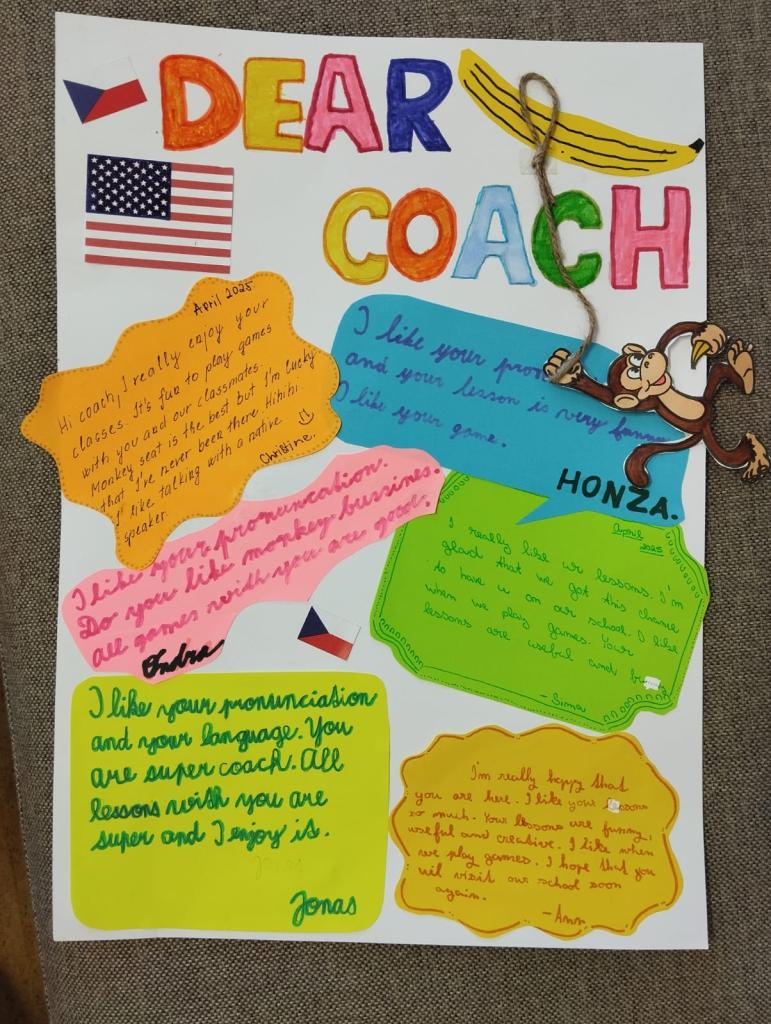 DEAR
COACH
April 2025
Hi coach, I really enjoy your
classes. It's fun to play games
with you and our classmates.
Monkey seat is the best but I'm lucky
that I've never been there. Hihihi
I like talking with a native
speaker.
Christine.
I like your
and your lesson is very funny
I like your game.
HONZA.
I like your pronuncation.
Do you like monkey bussines.
All games with you are good.
Ondra
April
2025
I really like ur lessons. I'm
glad that we got this chance
to have u on our school. I like
when we play games. Your
lessons are useful and
- Sima
I like your pronunciation
and your language. You
are super coach. All
lessons with you are
super and I enjoy is.
Jonas
Jonas
I'm really happy that
you are here. I like your lessons
so much. Your lessons are funny,
useful and creative. I like when
we play games. I hope that you
wil visit our school soon
again.
- Ann